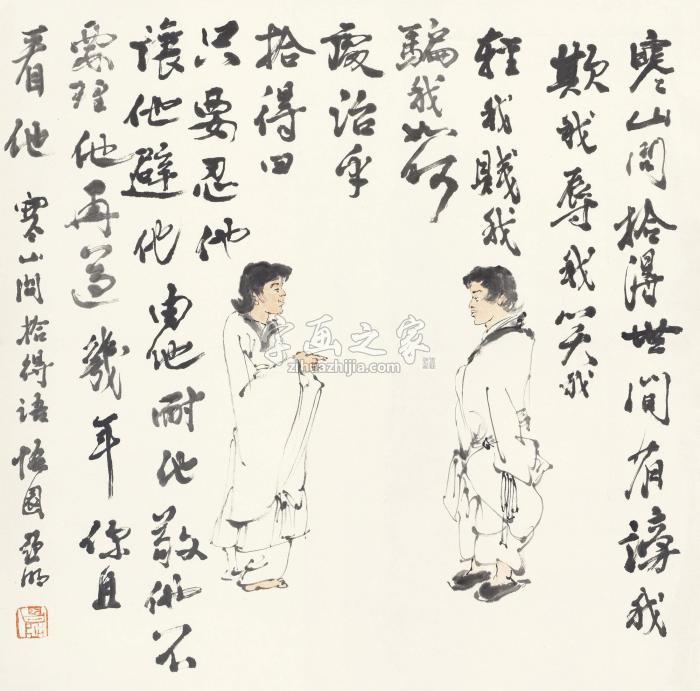 寒山問拾得世間有謗我
欺我辱我笑我
輕我賤我
騙我如何
處治乎
拾得曰
只要忍他
讓他避他由他耐他敬他不
要理他再過幾年你且
看他
寒山問拾得語悟園亞明
字画之家
zihuazhijia.com